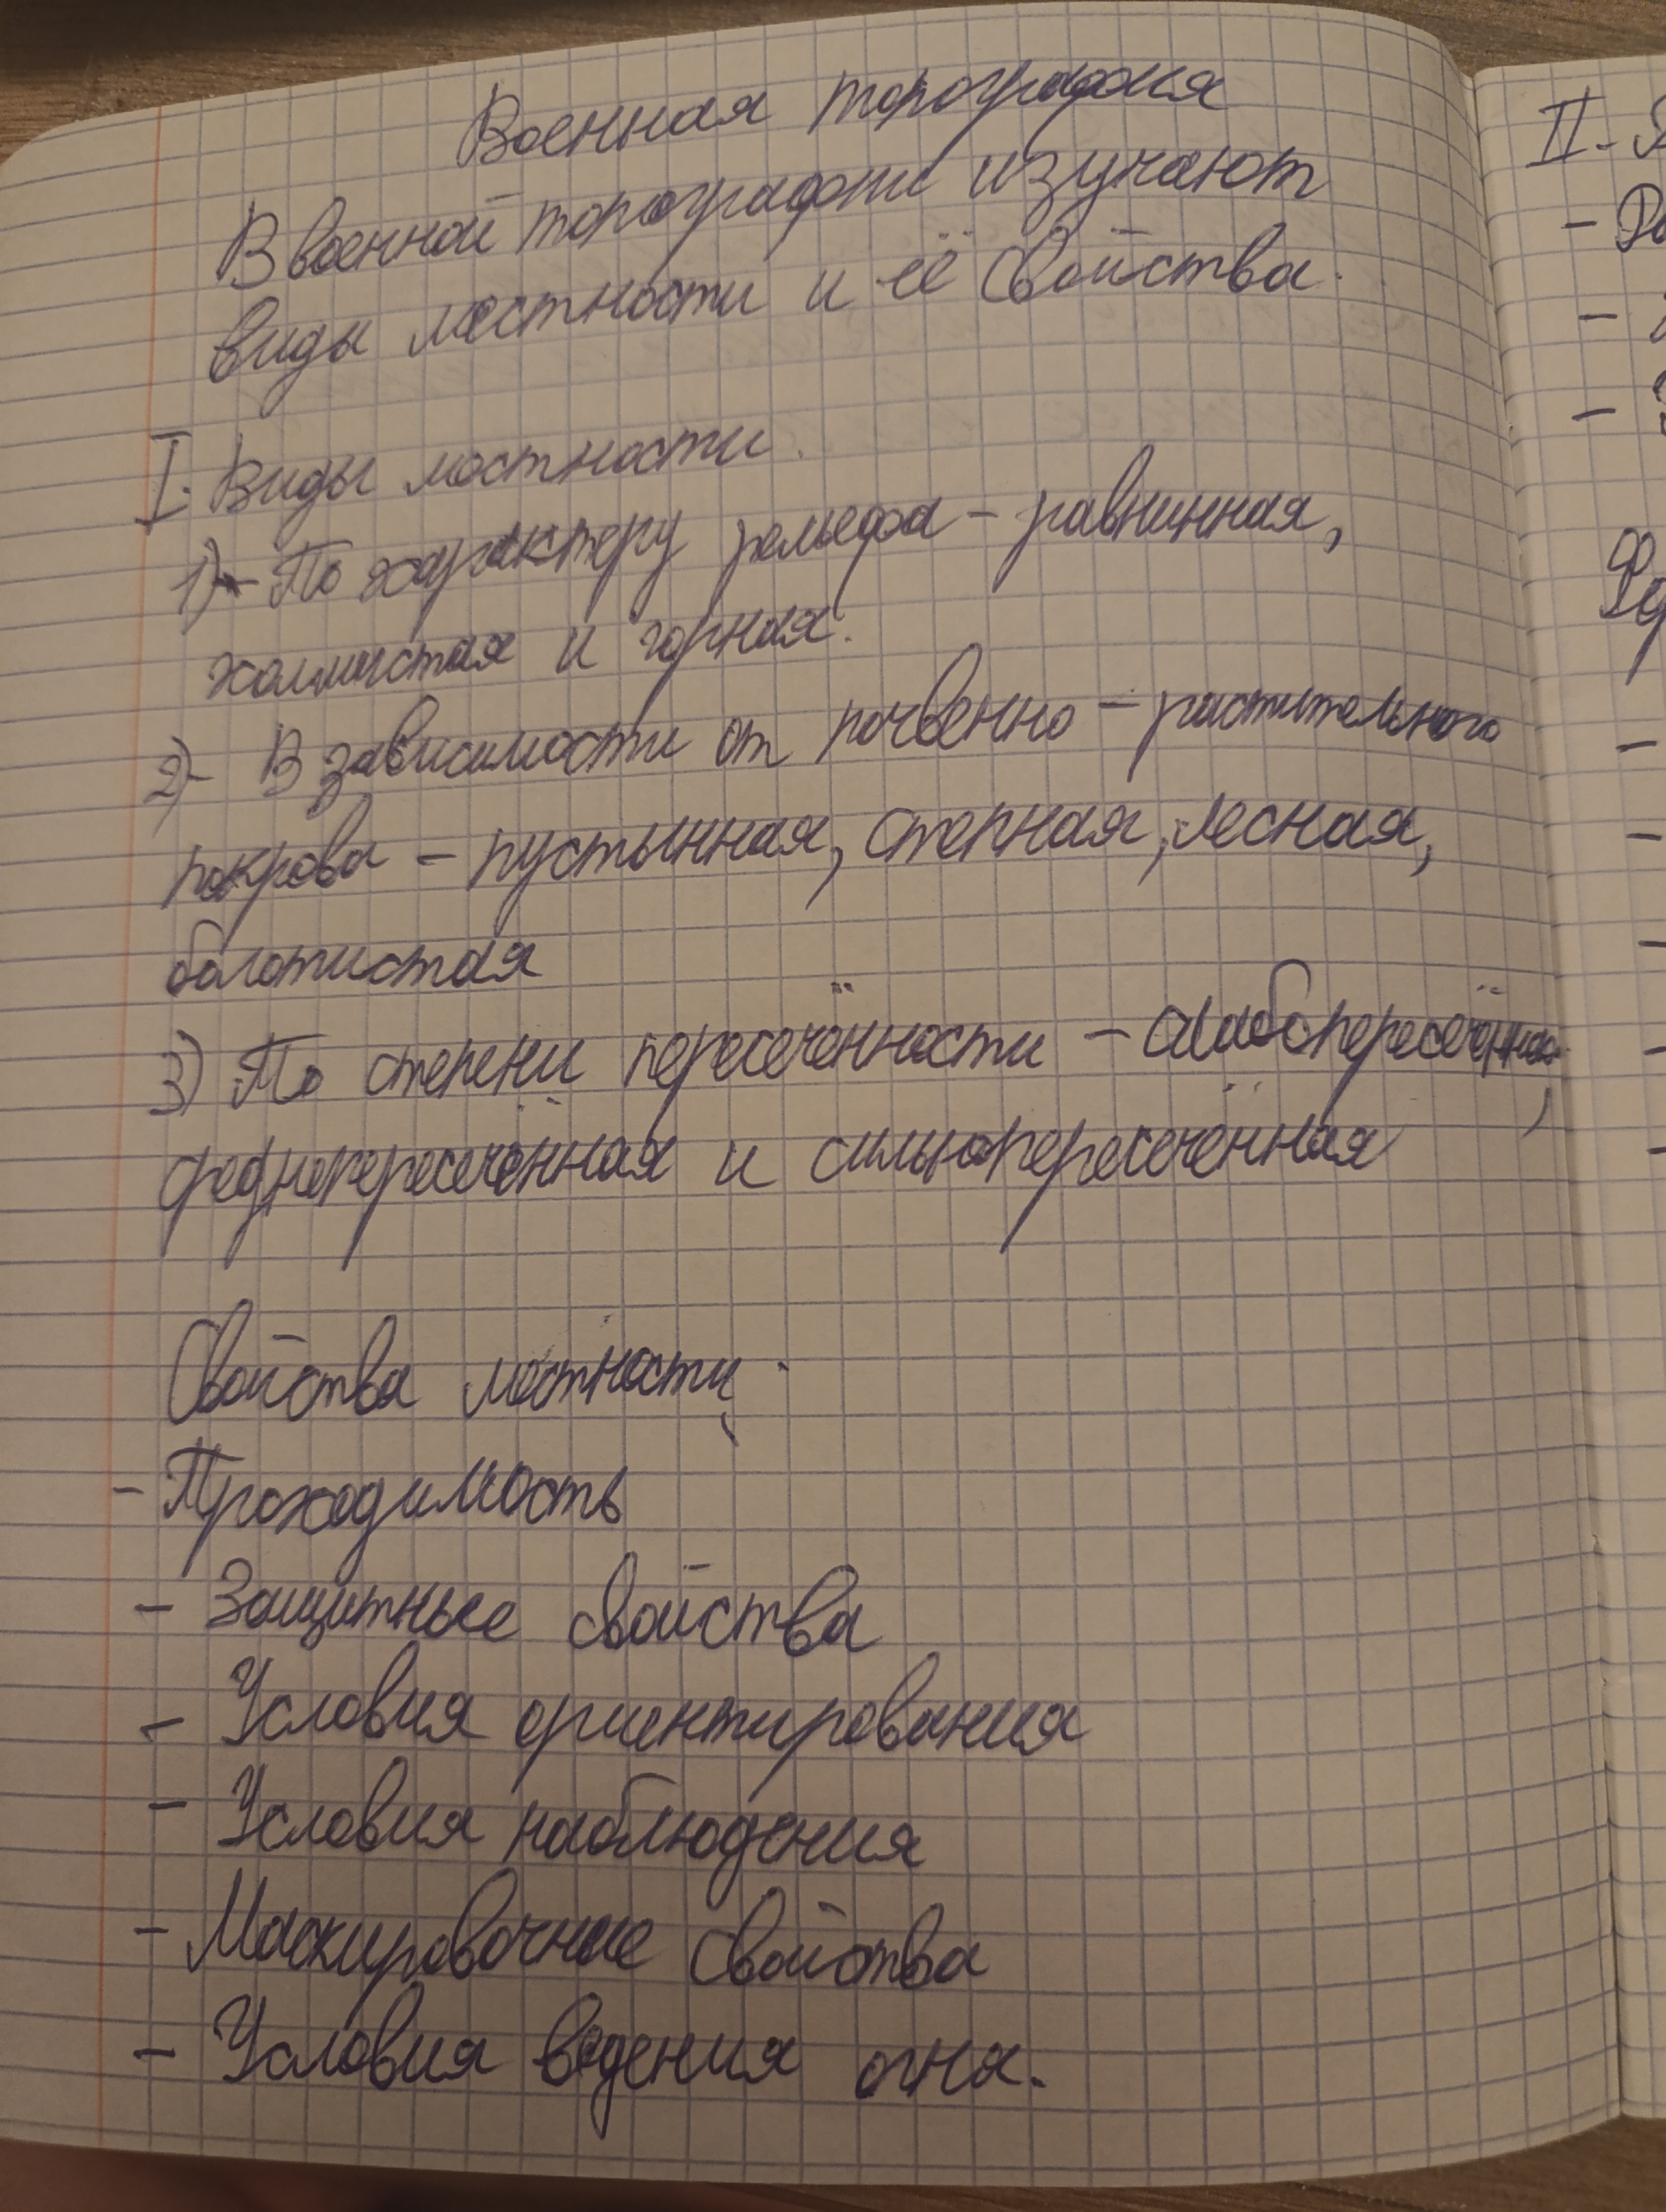 Военная топография
В военной топографии изучают
виды местности и её свойства.
I. Виды местности.
1) - По характеру рельефа - равнинная,
холмистая и горная.
2) - В зависимости от почвенно - растительного
покрова - пустынная, степная, лесная,
болотистая
3) По степени пересечённости - слабопересечённая,
среднепересечённая и сильнопересечённая
Свойства местности.
- Проходимость
- Защитные свойства
- Условия ориентирования
- Условия наблюдения
- Маскировочные свойства
- Условия ведения огня.
II -